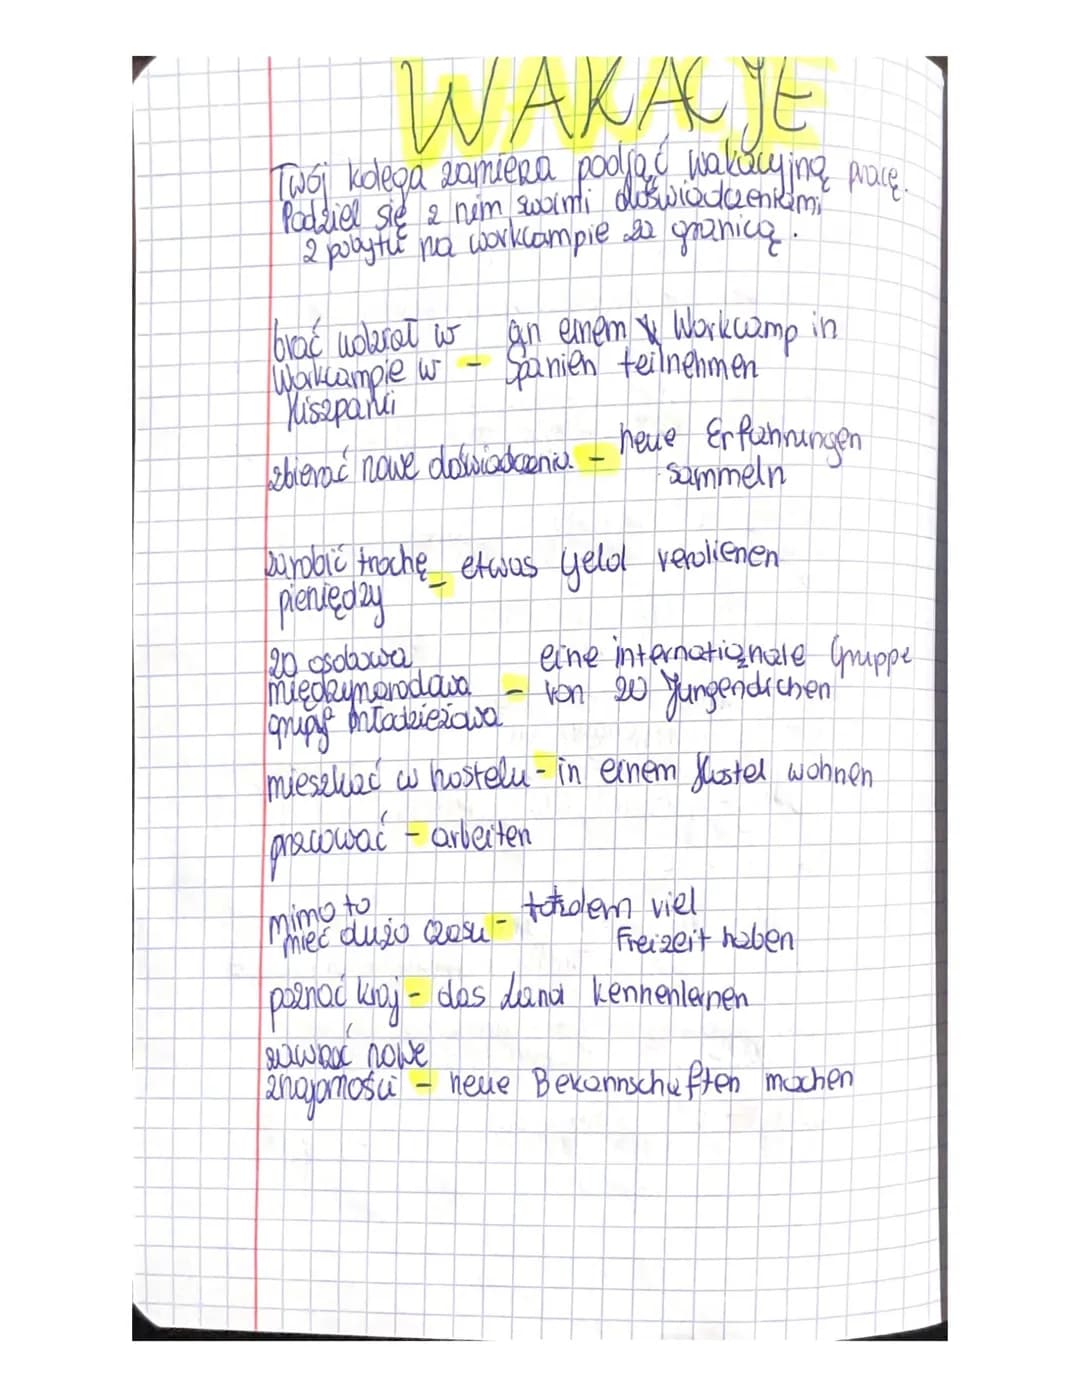 WAKACJE
Twój kolega zamierza podjąć wakacyjną pracę.
Podziel się z nim swoimi doświadczeniami
z pobytu na workcampie za granicą.
brać udział w
Workcampie w
Hiszpanii
-
an einem Workcamp in
Spanien teilnehmen
zbierać nowe doświadczenia -
neue Erfahrungen
sammeln
zarobić trochę
pieniędzy
- etwas Geld verdienen
20 osobowa
międzynarodowa
grupa młodzieżowa
-
eine internationale Gruppe
von 20 Jungendichen
mieszkać w hostelu - in einem Hostel wohnen
pracować - arbeiten
mimo to
mieć dużo czasu -
viel
Freizeit haben
poznać kraj - das Land kennenlernen
zawrzeć nowe
znajomości - neue Bekannschaften machen